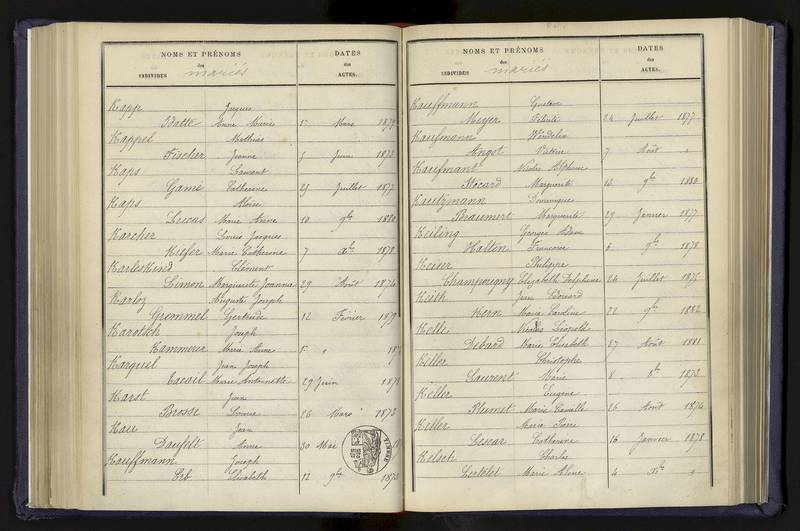 NOMS ET PRÉNOMS
des
INDIVIDUS
mariés
DATES
des
ACTES.
Kapp Jacques
Watte Anne Marie 5 Mars
Kappel Mathias
Fischer Jeanne 5 Juin 1873
Kaps Laurent
Gamé Catherine 25 Juillet 1877
Kaps Aloïse
Lucas Marie Anne 10 9bre 1880
Karcher Louis Jacques
Kiefer Marie Catherine 7 Xbre 1878
Karleskind Clément
Simon Marguerite Joanna 29 Août 1874
Karloz Auguste Joseph
Grummel Gertrude 12 Février 1879
Karotsch Joseph
Kammerer Marie Anne 5 "
Karquel Jean Joseph
Marie Antoinette 29 Juin 1878
Karst Jean
Brosse Louise 26 Mars 1873
Kau Jean
Daufelt Anne 30 Mai
Kauffmann Joseph
Erb Elisabeth 12 9bre
NOMS ET PRÉNOMS
des
INDIVIDUS
mariés
DATES
des
ACTES.
Kauffmann Gustave
Meyer Félicité 24 Juillet 1877
Kaufmann Wendelin
Angot Victoire 7 Août "
Kaufmant Nicolas Alphonse
Stocard Marguerite 13 9bre 1880
Kautzmann Dominique
Beaumert Marguerite 29 Janvier 1877
Keiling Georges Adam
Halten Françoise 5 9bre 1878
Keiser Philippe
Champougny Elizabeth Delphine 24 Juillet 1875
Keith Jean Edouard
Kern Marie Caroline 22 9bre 1882
Kelle Nicolas Léopold
Debard Marie Elisabeth 27 Août 1881
Keller Christophe
Laurent Marie 8 8bre 1873
Keller Eugène
Plumet Marie Camille 26 Août 1874
Keller Marie Pierre
Lescar Catherine 16 Janvier 1878
Kelsch Charles
Marie Aline 4 Xbre "